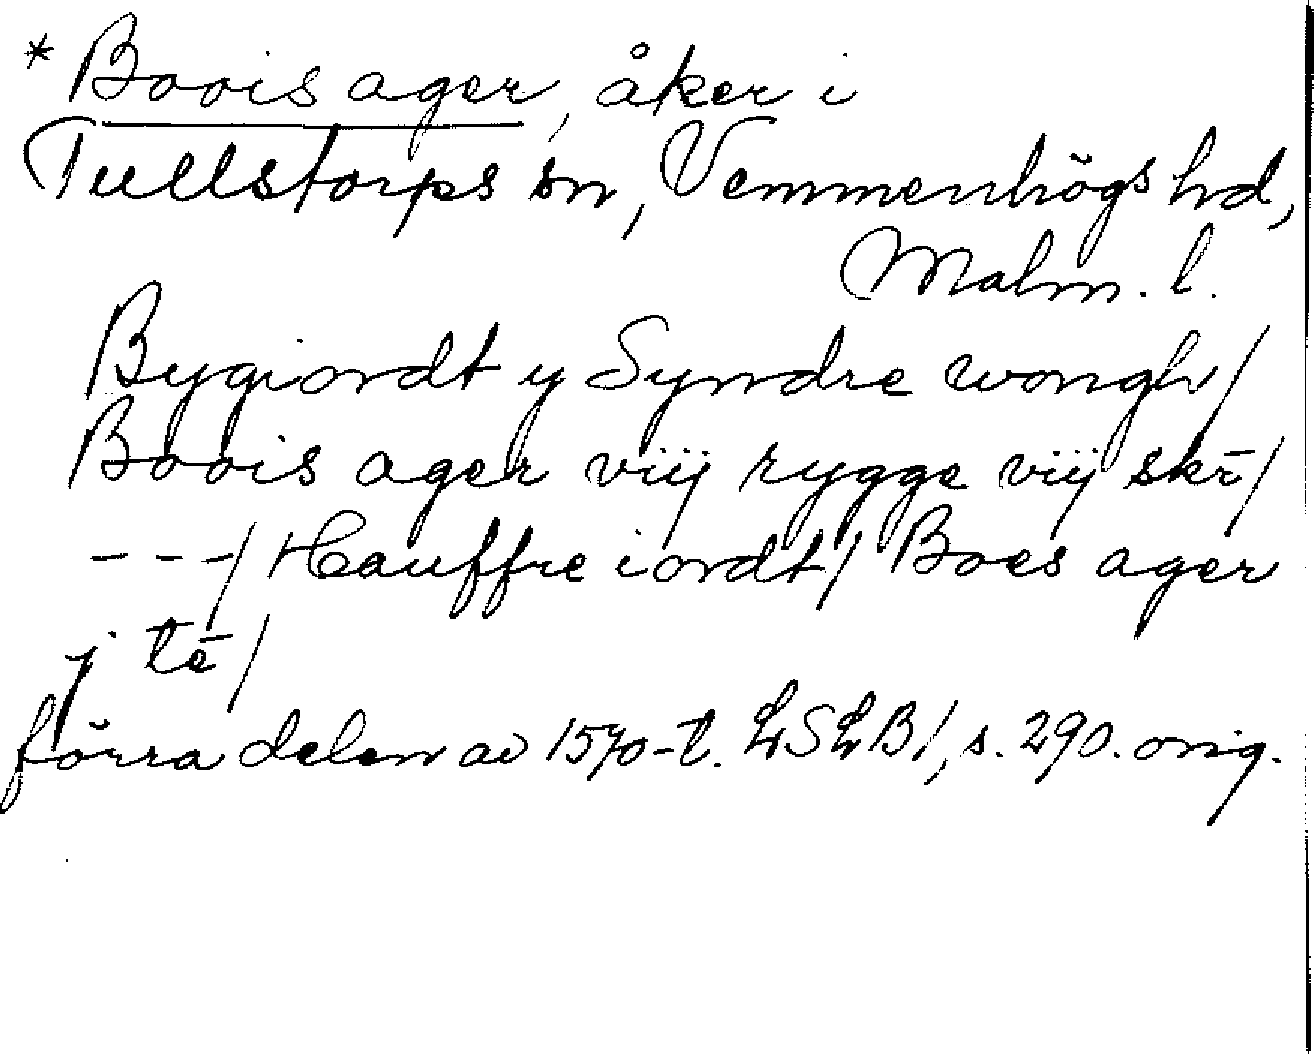 * Boois ager, åker i
Tullstorps sn, Vemmenhögs hd,
Malm. l.
Bygiordt y Syndre wongh/
Boois ager viij rygge vij skr̄/
---/ Hauffre iordt/ Boes ager
j tē/
förra delen av 1570-t. LSLB1, s. 290. orig.